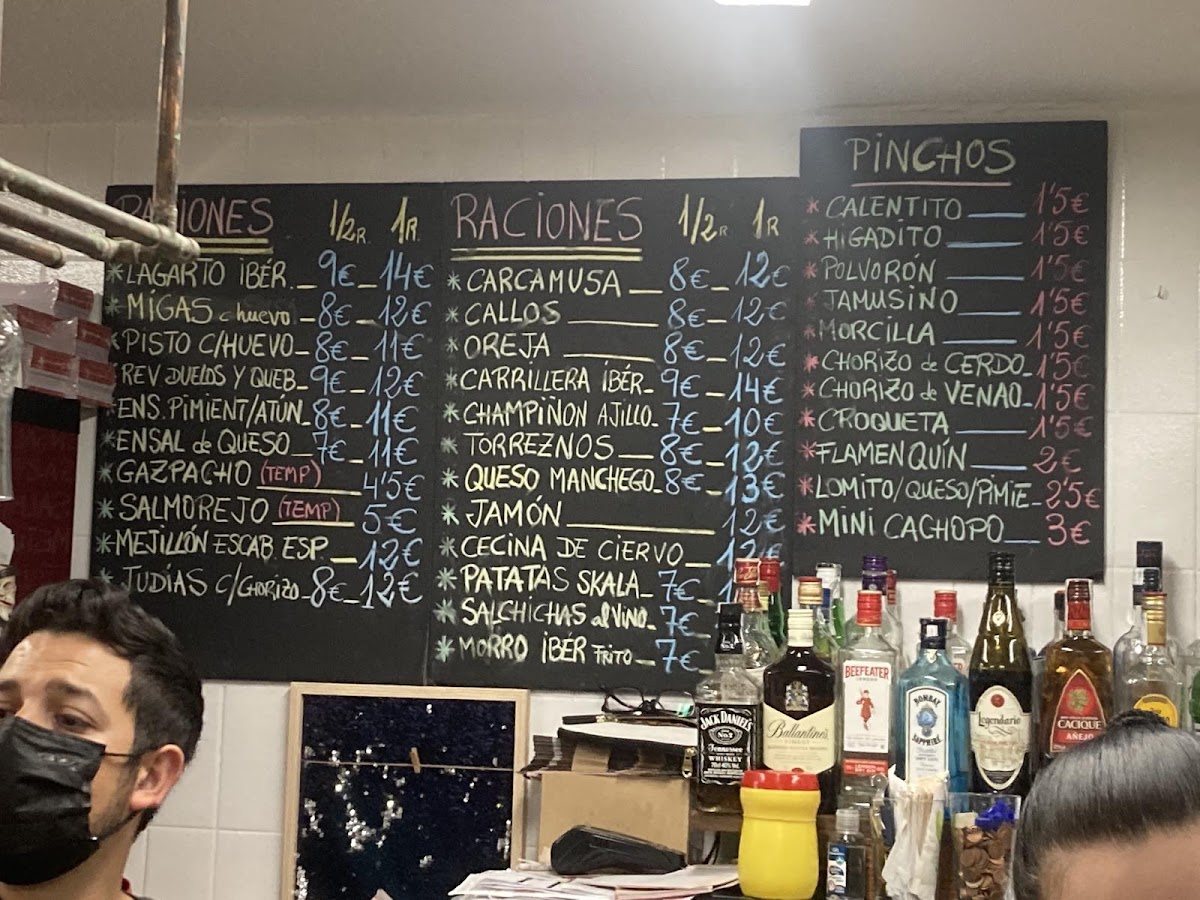 RACIONES 1/2 R. 1 R.
* LAGARTO IBÉR. 9€ 14€
* MIGAS c huevo 8€ 12€
* PISTO C/HUEVO 8€ 11€
* REV DUELOS Y QUEB 9€ 12€
* ENS. PIMIENT/ATÚN 8€ 11€
* ENSAL de QUESO 7€ 11€
* GAZPACHO (TEMP) 4'5€
* SALMOREJO (TEMP) 5€
* MEJILLÓN ESCAB. ESP 12€
* JUDÍAS C/CHORIZO 8€ 12€
RACIONES 1/2 R 1 R
* CARCAMUSA 8€ 12€
* CALLOS 8€ 12€
* OREJA 8€ 12€
* CARRILLERA IBÉR 9€ 14€
* CHAMPIÑON AJILLO 7€ 10€
* TORREZNOS 8€ 12€
* QUESO MANCHEGO 8€ 13€
* JAMÓN 12€
* CECINA DE CIERVO
* PATATAS SKALA 7€
* SALCHICHAS al VINO 7€
* MORRO IBÉR FRITO 7€
PINCHOS
* CALENTITO 1'5€
* HIGADITO 1'5€
* POLVORÓN 1'5€
* JAMUSINO 1'5€
* MORCILLA 1'5€
* CHORIZO de CERDO 1'5€
* CHORIZO de VENAO 1'5€
* CROQUETA 1'5€
* FLAMENQUÍN 2€
* LOMITO/QUESO/PIMIE 2'5€
* MINI CACHOPO 3€
JACK DANIEL'S
Tennessee
WHISKEY
Ballantine's
FINEST
BEEFEATER
LONDON
BOMBAY
SAPPHIRE
Legendario
CACIQUE
AÑEJO